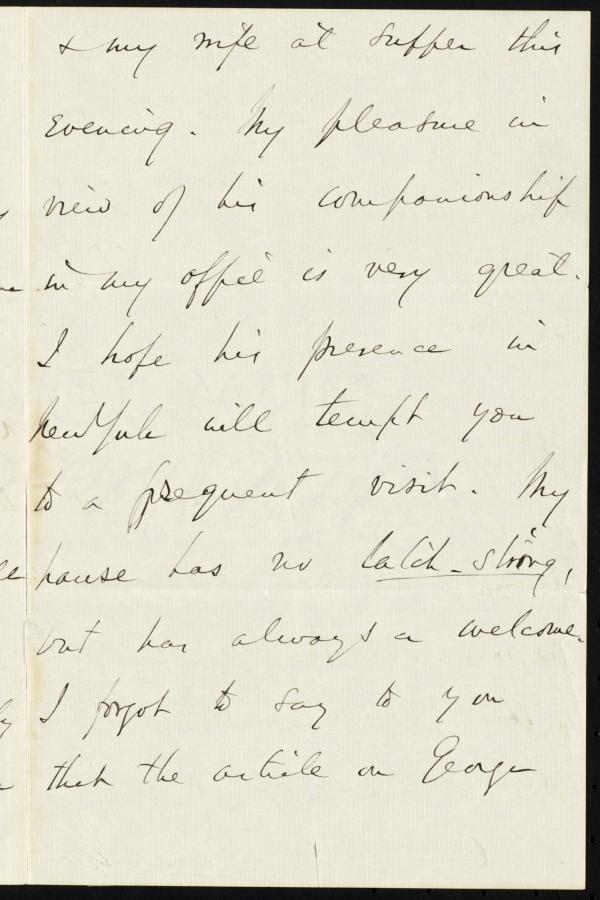 & my wife at supper this
evening. My pleasure in
view of his companionship
in my office is very great.
I hope his presence in
New York will tempt you
to a frequent visit. My
house has no latch-string,
but has always a welcome.
I forgot to say to you
that the article on George